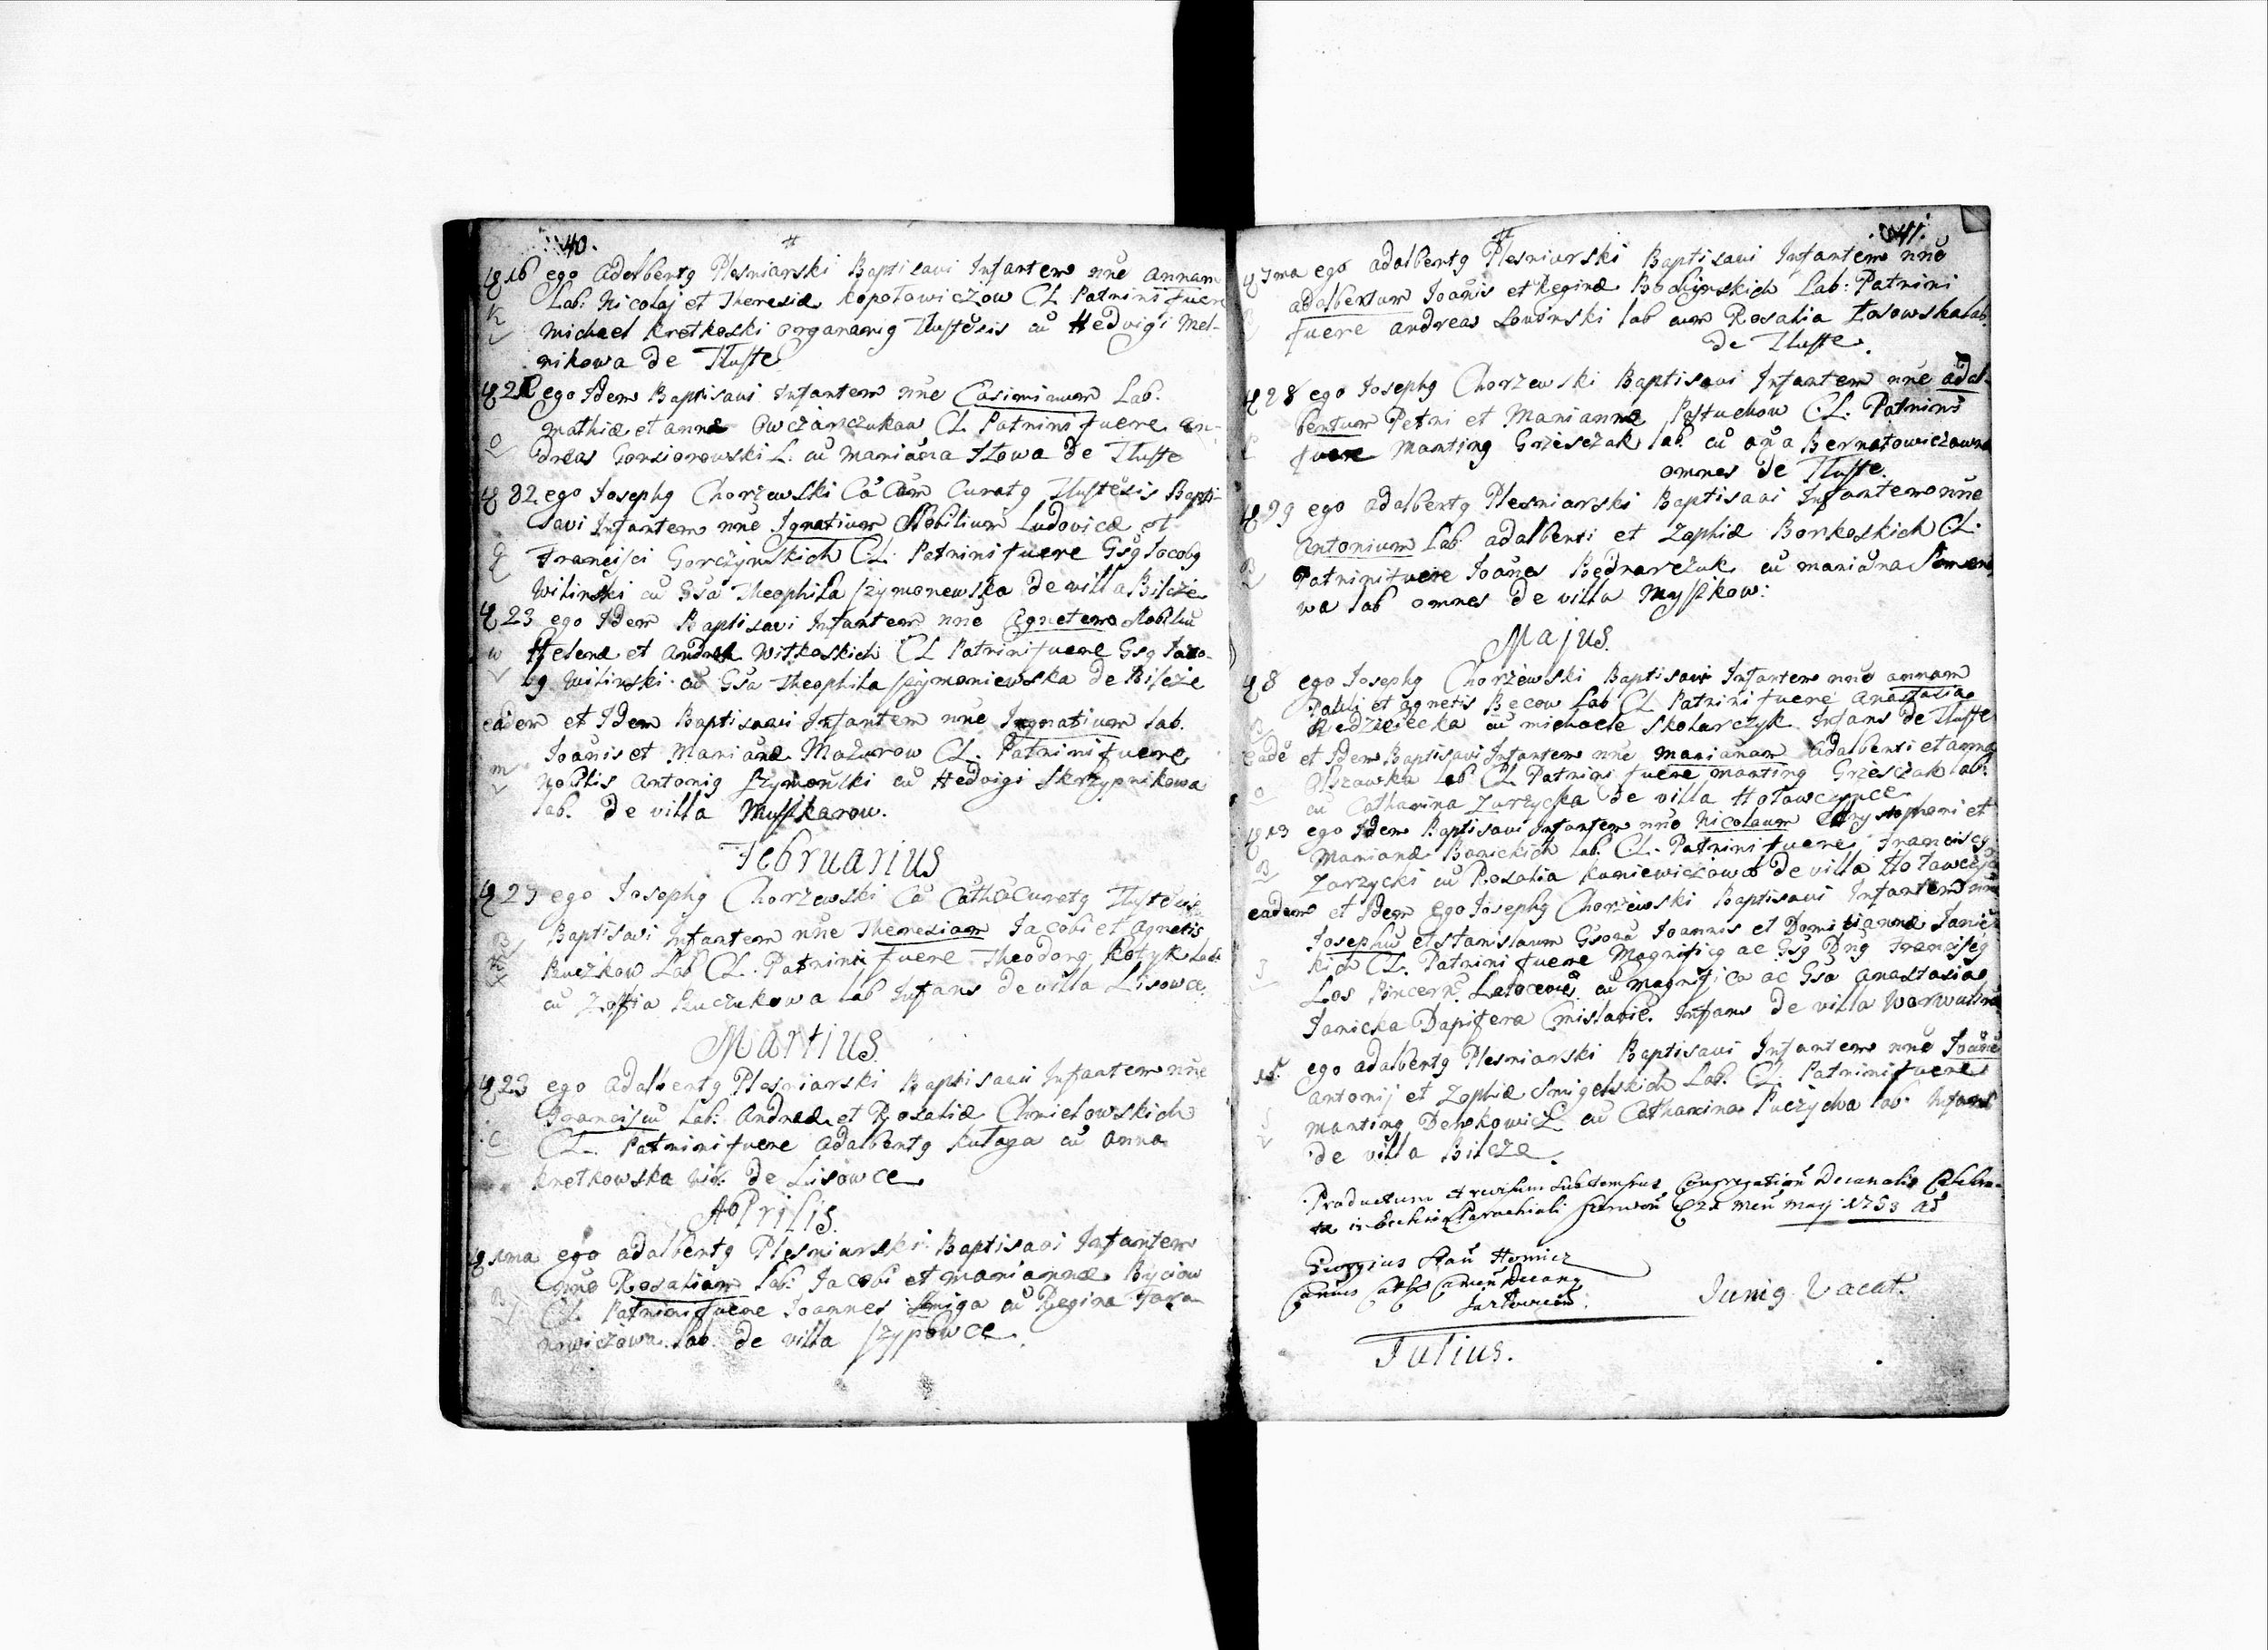 40.
16 ego Adalbertg Plesniarski Baptisavi Infantem nne Annam
Lab: Nicolaj et Theresiæ Kopotowiczow CL Patrini fuere
K Michael Kretkoski organarig Tlustēsis cū Hedvigi Mel-
nikowa de Tluste
ego Idem Baptisavi Infantem nne Casimirum Lab.
Mathiæ et Annæ Owczarczukow CL Patrini fuere An-
O dreas Gonsiorowski L. cū Mariāna de Tluste
ego Josephg Chorzewski Curatg Tlustēsis Bapti-
savi Infantem nne Ignatium Nobilium Ludovicæ et
G Francisci Gorczynskich CL. Patrini fuere Gsg Jacobg
Witinski cū Gsa Theophila Szymonewska de villa Bilcze
23 ego Idem Baptisavi Infantem nne Agnetem Nobiliū
W Helenæ et Andreæ Witkoskich CL Patrini fuere Gsg Jaco-
bg Witinski cū Gsa Theophila Szymoniewska de Bilcze
eadem et Idem Baptisavi Infantem nne Ingnatium lab.
Joānis et Mariānæ Mazurow CL. Patrini fuere
m Nobilis Antonig Szymonski cū Hedvigi Skrzypnikowa
lab. de villa Muszkarow.
Februarius
ego Josephg Chorzewski Cā Curatg Tlustēsis
Baptisavi Infantem nne Theresiam Jacobi et Agnetis
Ruczkow Lab CL. Patrini fuere Theodorg Kotyk Lab
cū Zoffia lab Infans de villa Lisowce
Martius
23 ego Adalbertg Plesniarski Baptisavi Infantem nne
Franciscū Lab: Andreæ et Rosaliæ Chmielowskich
C CL. Patrini fuere Adalbertg Kulaga cū Anna
Kretkowska de Lisowce
Aprilis
1ma ego Adalbertg Plesniarski Baptisavi Infantem
nne Rosaliam Lab: Jacobi et Mariannæ Byciow
B CL. Patrini fuere Joannes Smiga cū Regina Tara-
nowiczowa lab. de villa Szypowce.
41.
7ma ego Adalbertg Plesniarski Baptisavi Infantem nne
Adalbertum Joānis et Reginæ Lab: Patrini
fuere Andreas Lowinski lab cum Rosalia Łasowska lab.
de Tluste.
28 ego Josephg Chorzewski Baptisavi Infantem nne Adal-
bertum Petri et Mariannæ Pastuchow CL. Patrini
P fuere Marting Grzesczak lab. cū Bernatowiczowna
omnes de Tluste.
29 ego Adalbertg Plesniarski Baptisavi Infantem nne
Antonium Lab Adalberti et Zophiæ Borkoskich CL.
B Patrini fuere Joānes Bednarczuk cū Mariāna
wa lab omnes de villa Myszkow:
Majus.
8 ego Josephg Chorzewski Baptisavi Infantem nne Annam
Pauli et Agnetis Becow Lab CL Patrini fuere Anastasia
B cū Michaele Skolarczyk Infans de Tluste
eadē et Idem Baptisavi Infantem nne Mariānam Adalberti et Annæ
O lab CL Patrini fuere Marting Grzesczak lab:
cū Catharina Zarzycka de villa Hołowczynce
13 ego Idem Baptisavi Infantem nne Nicolaum Chrystophori et
B Mariānæ Banickich lab. CL. Patrini fuere Franciscg
Zarzycki cū Rosalia Kaniewiczowa de villa
eadem et Idem ego Josephg Chorzewski Baptisavi Infantem nne
Josephū et Stanislaum Gsorū Joannis et Domitiannæ Janic-
J kich CL. Patrini fuere Magnificg ac Gsg Dng Franciscg
Los Pincern. cū Magnifica ac Gsa Anastasia
Janicka Dapifera Infans de villa
15. ego Adalbertg Plesniarski Baptisavi Infantem nne
Antonij et Zophiæ Smigelskich Lab. CL. Patrini fuere
S Marting cū Catharina lab. Infans
de villa Bilcze.
Productum et revisum sub tempus Congregationī Decanalis Celebra-
tæ in Ecclesia Parochiali Men Maij 1753 Aō
Georgius
Decang
Junig Vacat.
Julius.